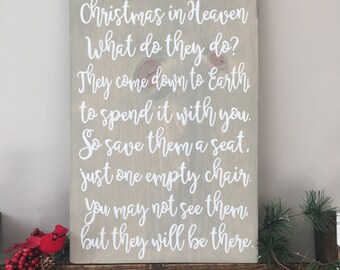 Christmas in Heaven
What do they do?
They come down to Earth,
to spend it with you.
So save them a seat,
just one empty chair.
You may not see them,
but they will be there.